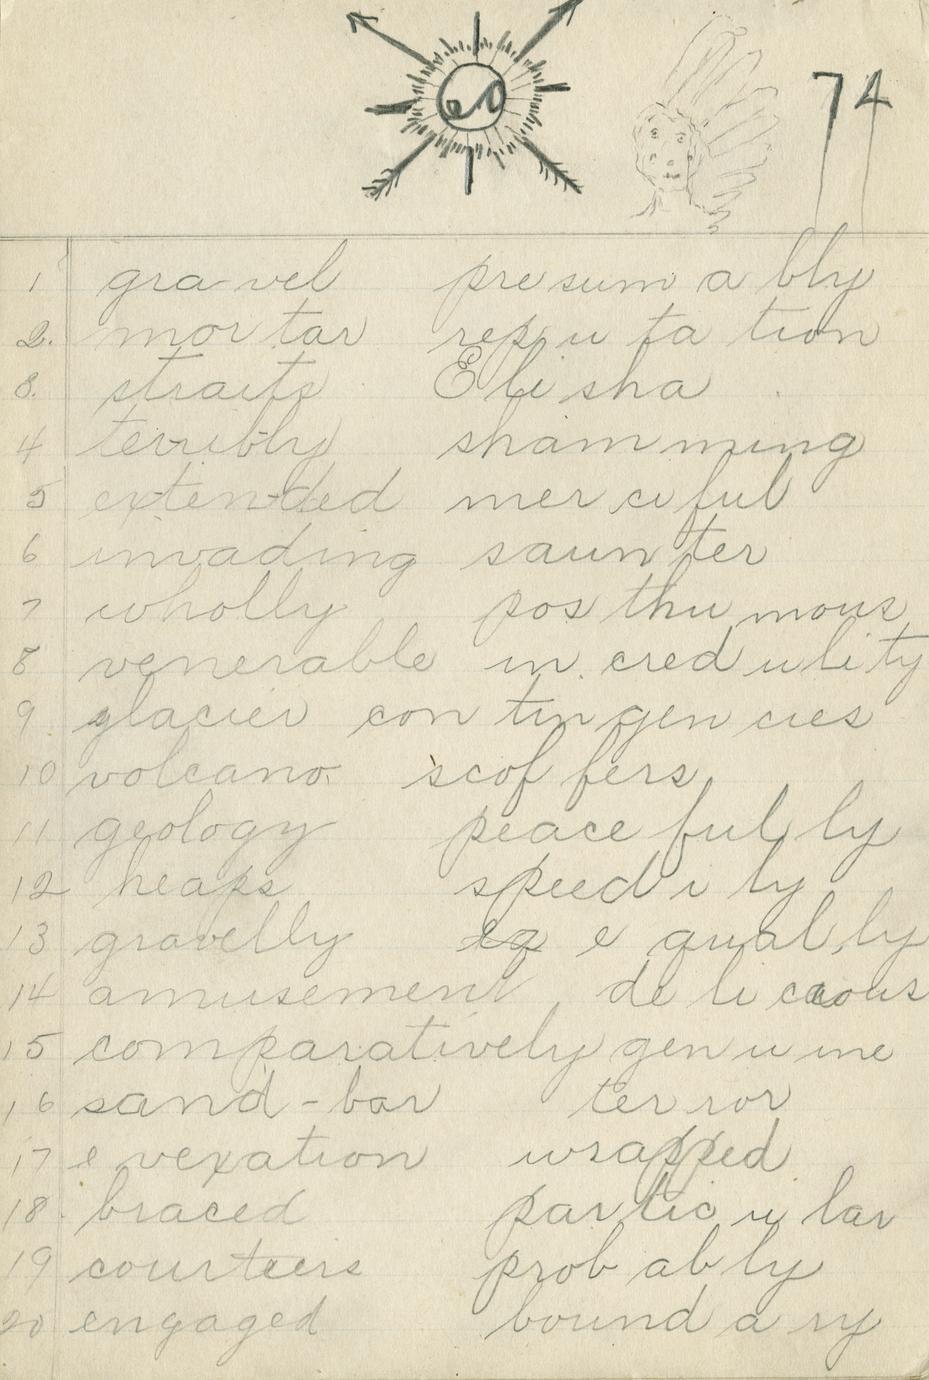 74
1 gra-vel presum a bly
2. mor tar rep u ta tion
3. straits Eli sha
4 terribly sham ming
5 exten-ded mer ci ful
6 invading saun ter
7 wholly pos thu mous
8 venerable in cred u li ty
9 glacier con tin gen cies
10 volcano scof fers
11 geology peace ful ly
12 heaps speed i ly
13 gravelly eq e qual ly
14 amusement de li cious
15 comparatively gen u ine
16 sand-bar ter ror
17 e vexation wrapped
18. braced par tic u lar
19 courteers prob ab ly
20 engaged bound a ry